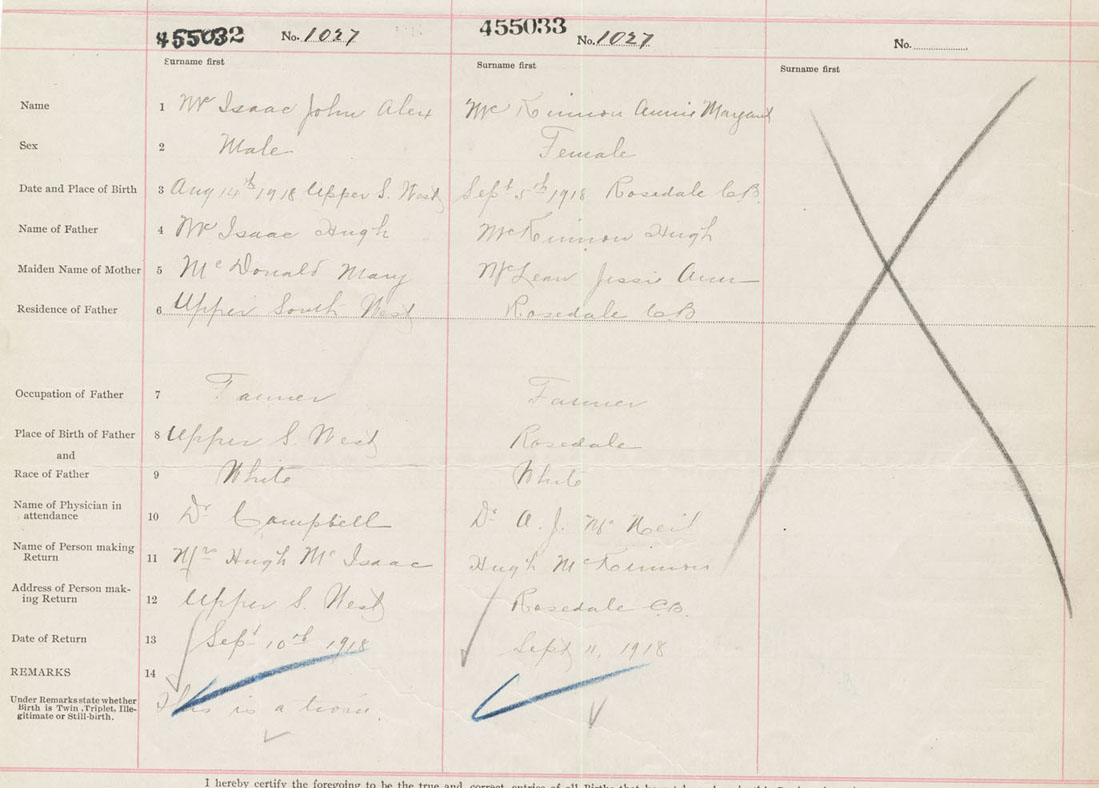 455032 No. 1027 455033 No. 1027 No.
Surname first Surname first Surname first
Name 1 Mc Isaac John Alex Mc Kinnon Annie Margaret
Sex 2 Male Female
Date and Place of Birth 3 Aug 14th 1918 Upper S. West Sept 5th 1918 Rosedale C.B.
Name of Father 4 Mc Isaac Hugh McKinnon Hugh
Maiden Name of Mother 5 Mc Donald Mary McLean Jessie Ann
Residence of Father 6 Upper South West Rosedale CB
Occupation of Father 7 Farmer Farmer
Place of Birth of Father 8 Upper S. West Rosedale
and
Race of Father 9 White White
Name of Physician in
attendance 10 Dr. Campbell Dr. A. J. Mc Neil
Name of Person making
Return 11 Mrs Hugh Mc Isaac Hugh McKinnon
Address of Person mak-
ing Return 12 Upper S. West Rosedale C.B.
Date of Return 13 Sept 10th 1918 Sept 11, 1918
REMARKS 14
Under Remarks state whether
Birth is Twin, Triplet, Ille-
gitimate or Still-birth. This is a
I hereby certify the foregoing to be the true and correct entries of all Births that